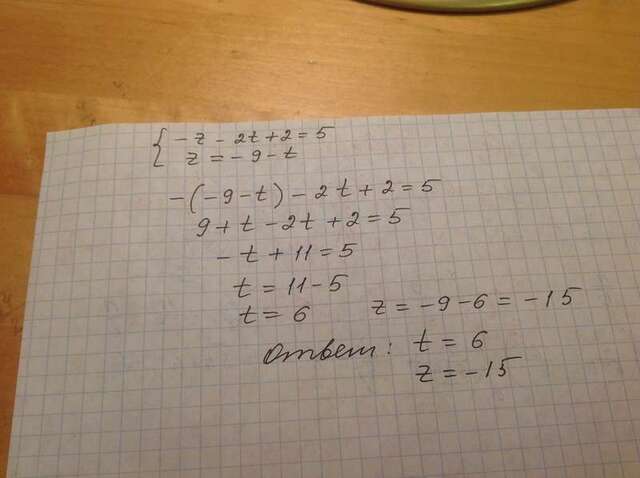 { -z - 2t + 2 = 5
z = -9 - t
-(-9-t) - 2t + 2 = 5
9 + t - 2t + 2 = 5
-t + 11 = 5
t = 11 - 5
t = 6 z = -9 - 6 = -15
Ответ: t = 6
z = -15